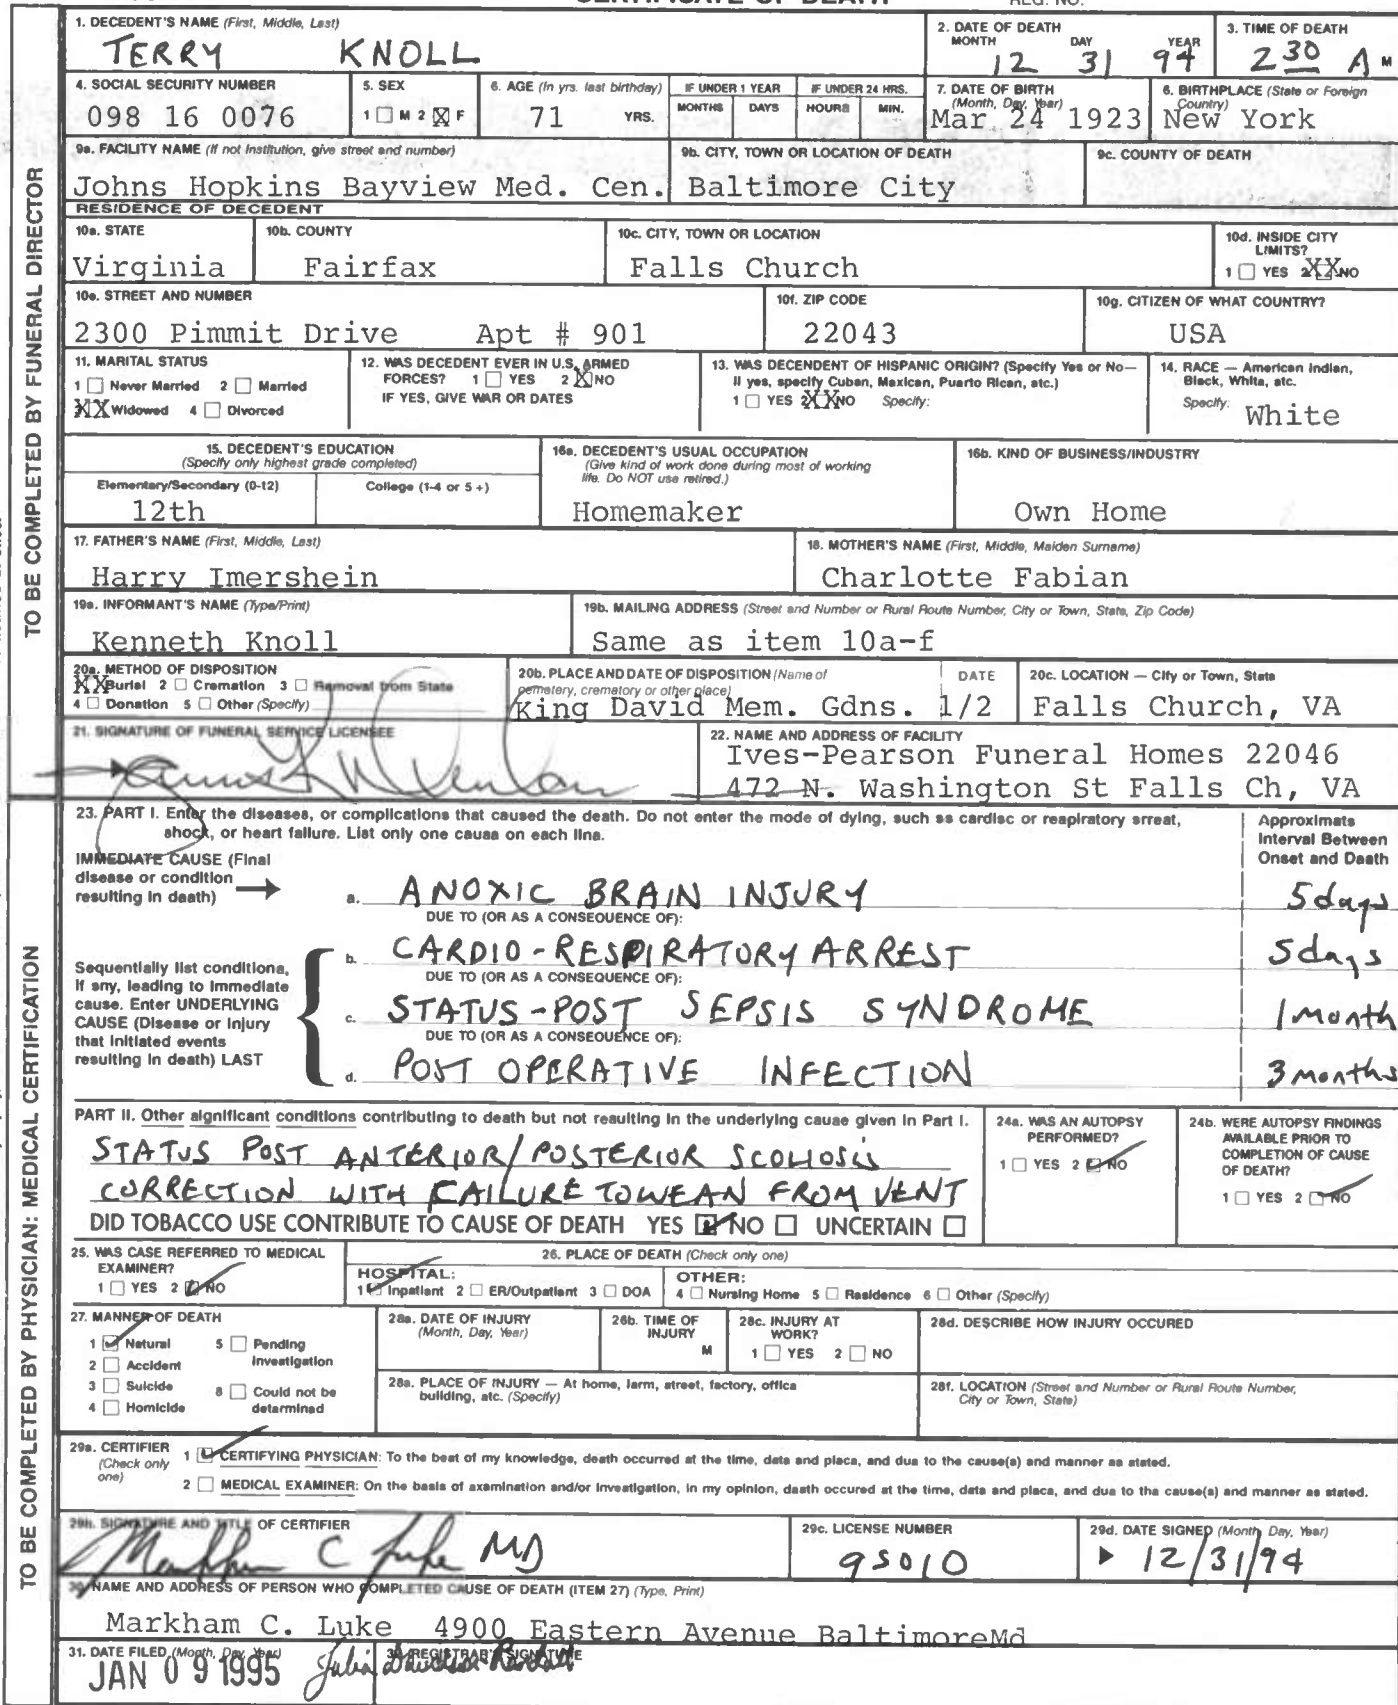 CERTIFICATE OF DEATH REG. NO.
1. DECEDENT'S NAME (First, Middle, Last)
TERRY KNOLL
2. DATE OF DEATH
MONTH DAY YEAR
12 31 94
3. TIME OF DEATH
2 30 A M
4. SOCIAL SECURITY NUMBER
098 16 0076
5. SEX
1 ☐ M 2 ☒ F
6. AGE (In yrs. last birthday)
71 YRS.
IF UNDER 1 YEAR
MONTHS DAYS
IF UNDER 24 HRS.
HOURS MIN.
7. DATE OF BIRTH
(Month, Day, Year)
Mar 24 1923
6. BIRTHPLACE (State or Foreign
Country)
New York
9a. FACILITY NAME (If not Institution, give street and number)
Johns Hopkins Bayview Med. Cen.
9b. CITY, TOWN OR LOCATION OF DEATH
Baltimore City
9c. COUNTY OF DEATH
RESIDENCE OF DECEDENT
10a. STATE
Virginia
10b. COUNTY
Fairfax
10c. CITY, TOWN OR LOCATION
Falls Church
10d. INSIDE CITY
LIMITS?
1 ☐ YES 2 XX NO
10e. STREET AND NUMBER
2300 Pimmit Drive Apt # 901
10f. ZIP CODE
22043
10g. CITIZEN OF WHAT COUNTRY?
USA
11. MARITAL STATUS
1 ☐ Never Married 2 ☐ Married
XX Widowed 4 ☐ Divorced
12. WAS DECEDENT EVER IN U.S. ARMED
FORCES? 1 ☐ YES 2 X NO
IF YES, GIVE WAR OR DATES
13. WAS DECENDENT OF HISPANIC ORIGIN? (Specify Yes or No—
If yes, specify Cuban, Mexican, Puerto Rican, etc.)
1 ☐ YES 2 XX NO Specify:
14. RACE — American Indian,
Black, White, etc.
Specify: White
15. DECEDENT'S EDUCATION
(Specify only highest grade completed)
Elementary/Secondary (0-12) College (1-4 or 5+)
12th
16a. DECEDENT'S USUAL OCCUPATION
(Give kind of work done during most of working
life. Do NOT use retired.)
Homemaker
16b. KIND OF BUSINESS/INDUSTRY
Own Home
17. FATHER'S NAME (First, Middle, Last)
Harry Imershein
18. MOTHER'S NAME (First, Middle, Maiden Surname)
Charlotte Fabian
19a. INFORMANT'S NAME (Type/Print)
Kenneth Knoll
19b. MAILING ADDRESS (Street and Number or Rural Route Number, City or Town, State, Zip Code)
Same as item 10a-f
20a. METHOD OF DISPOSITION
XX Burial 2 ☐ Cremation 3 ☐ Removal from State
4 ☐ Donation 5 ☐ Other (Specify)
20b. PLACE AND DATE OF DISPOSITION (Name of
cemetery, crematory or other place) DATE
King David Mem. Gdns. 1/2
20c. LOCATION — City or Town, State
Falls Church, VA
21. SIGNATURE OF FUNERAL SERVICE LICENSEE
22. NAME AND ADDRESS OF FACILITY
Ives-Pearson Funeral Homes 22046
472 N. Washington St Falls Ch, VA
TO BE COMPLETED BY FUNERAL DIRECTOR
23. PART I. Enter the diseases, or complications that caused the death. Do not enter the mode of dying, such as cardiac or respiratory arrest,
shock, or heart failure. List only one cause on each line.
Approximate
Interval Between
Onset and Death
IMMEDIATE CAUSE (Final
disease or condition
resulting in death) →
a. ANOXIC BRAIN INJURY 5 days
DUE TO (OR AS A CONSEQUENCE OF):
b. CARDIO-RESPIRATORY ARREST 5 days
DUE TO (OR AS A CONSEQUENCE OF):
c. STATUS-POST SEPSIS SYNDROME 1 month
DUE TO (OR AS A CONSEQUENCE OF):
d. POST OPERATIVE INFECTION 3 months
Sequentially list conditions,
if any, leading to immediate
cause. Enter UNDERLYING
CAUSE (Disease or Injury
that initiated events
resulting in death) LAST
PART II. Other significant conditions contributing to death but not resulting in the underlying cause given in Part I.
STATUS POST ANTERIOR/POSTERIOR SCOLIOSIS
CORRECTION WITH FAILURE TO WEAN FROM VENT
DID TOBACCO USE CONTRIBUTE TO CAUSE OF DEATH YES ☑ NO ☐ UNCERTAIN ☐
24a. WAS AN AUTOPSY
PERFORMED?
1 ☐ YES 2 ☑ NO
24b. WERE AUTOPSY FINDINGS
AVAILABLE PRIOR TO
COMPLETION OF CAUSE
OF DEATH?
1 ☐ YES 2 ☑ NO
25. WAS CASE REFERRED TO MEDICAL
EXAMINER?
1 ☐ YES 2 ☑ NO
26. PLACE OF DEATH (Check only one)
HOSPITAL:
1 ☑ Inpatient 2 ☐ ER/Outpatient 3 ☐ DOA
OTHER:
4 ☐ Nursing Home 5 ☐ Residence 6 ☐ Other (Specify)
27. MANNER OF DEATH
1 ☑ Natural 5 ☐ Pending
Investigation
2 ☐ Accident
3 ☐ Suicide 8 ☐ Could not be
determined
4 ☐ Homicide
28a. DATE OF INJURY
(Month, Day, Year)
26b. TIME OF
INJURY
M
28c. INJURY AT
WORK?
1 ☐ YES 2 ☐ NO
28d. DESCRIBE HOW INJURY OCCURED
28a. PLACE OF INJURY — At home, farm, street, factory, office
building, etc. (Specify)
28f. LOCATION (Street and Number or Rural Route Number,
City or Town, State)
29a. CERTIFIER
(Check only
one)
1 ☑ CERTIFYING PHYSICIAN: To the best of my knowledge, death occurred at the time, date and place, and due to the cause(s) and manner as stated.
2 ☐ MEDICAL EXAMINER: On the basis of examination and/or investigation, in my opinion, death occured at the time, date and place, and due to the cause(s) and manner as stated.
29b. SIGNATURE AND TITLE OF CERTIFIER
Markham C Luke MD
29c. LICENSE NUMBER
95010
29d. DATE SIGNED (Month, Day, Year)
▶ 12/31/94
30. NAME AND ADDRESS OF PERSON WHO COMPLETED CAUSE OF DEATH (ITEM 27) (Type, Print)
Markham C. Luke 4900 Eastern Avenue BaltimoreMd
31. DATE FILED (Month, Day, Year)
JAN 09 1995
REGISTRAR'S SIGNATURE
TO BE COMPLETED BY PHYSICIAN: MEDICAL CERTIFICATION